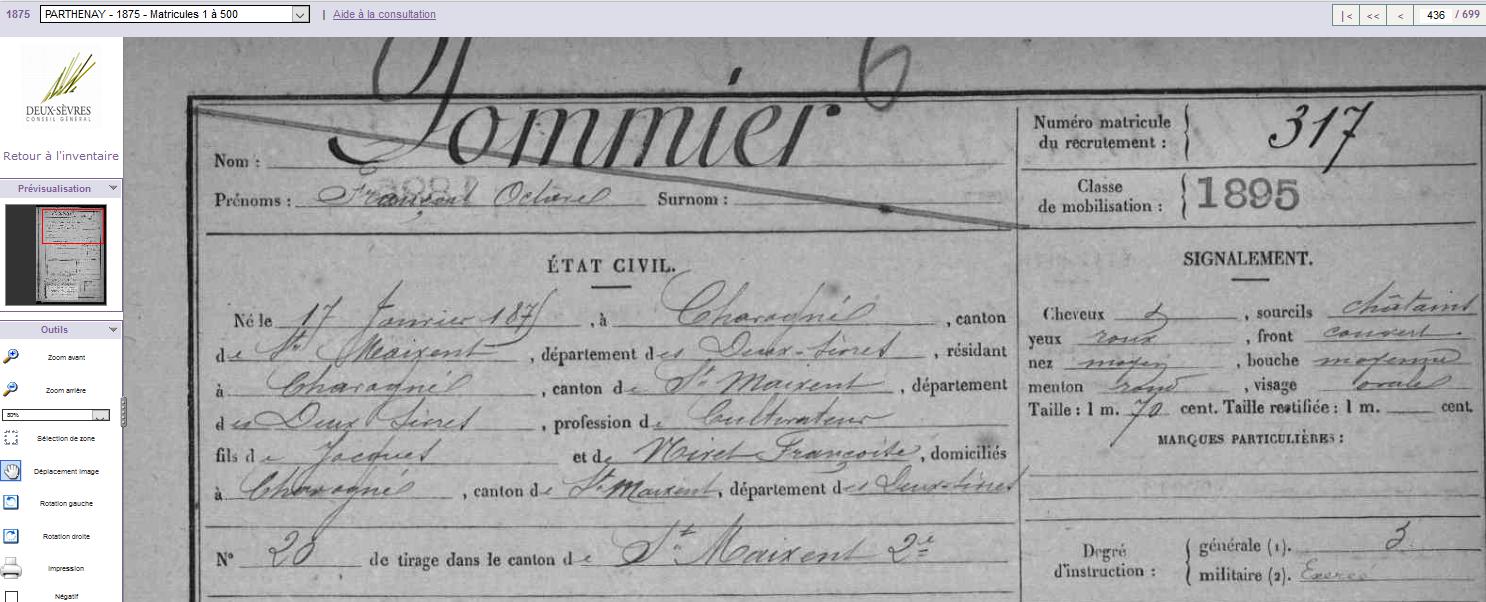 1875 PARTHENAY - 1875 - Matricules 1 à 500 | Aide à la consultation |< << < 436 / 699
DEUX-SÈVRES
CONSEIL GÉNÉRAL
Retour à l'inventaire
Prévisualisation
Outils
Zoom avant
Zoom arrière
80%
Sélection de zone
Déplacement image
Rotation gauche
Rotation droite
Impression
Négatif
6
Nom : Pommier
Prénoms : Octave Surnom :
Numéro matricule
du recrutement : 317
Classe
de mobilisation : 1895
ÉTAT CIVIL.
Né le 17 Janvier 1875, à Chavagné, canton
de St Maixent, département des Deux-Sèvres, résidant
à Chavagné, canton de St Maixent, département
des Deux Sèvres, profession de Cultivateur
fils de Jacques et de Françoise, domiciliés
à Chavagné, canton de St Maixent, département des Deux-Sèvres
N° 20 de tirage dans le canton de St Maixent 2e
SIGNALEMENT.
Cheveux &, sourcils châtains
yeux roux, front couvert
nez moyen, bouche moyenne
menton rond, visage ovale
Taille : 1 m. 70 cent. Taille rectifiée : 1 m. cent.
MARQUES PARTICULIÈRES :
Degré
d'instruction :
générale (1). 3
militaire (2). Exercé